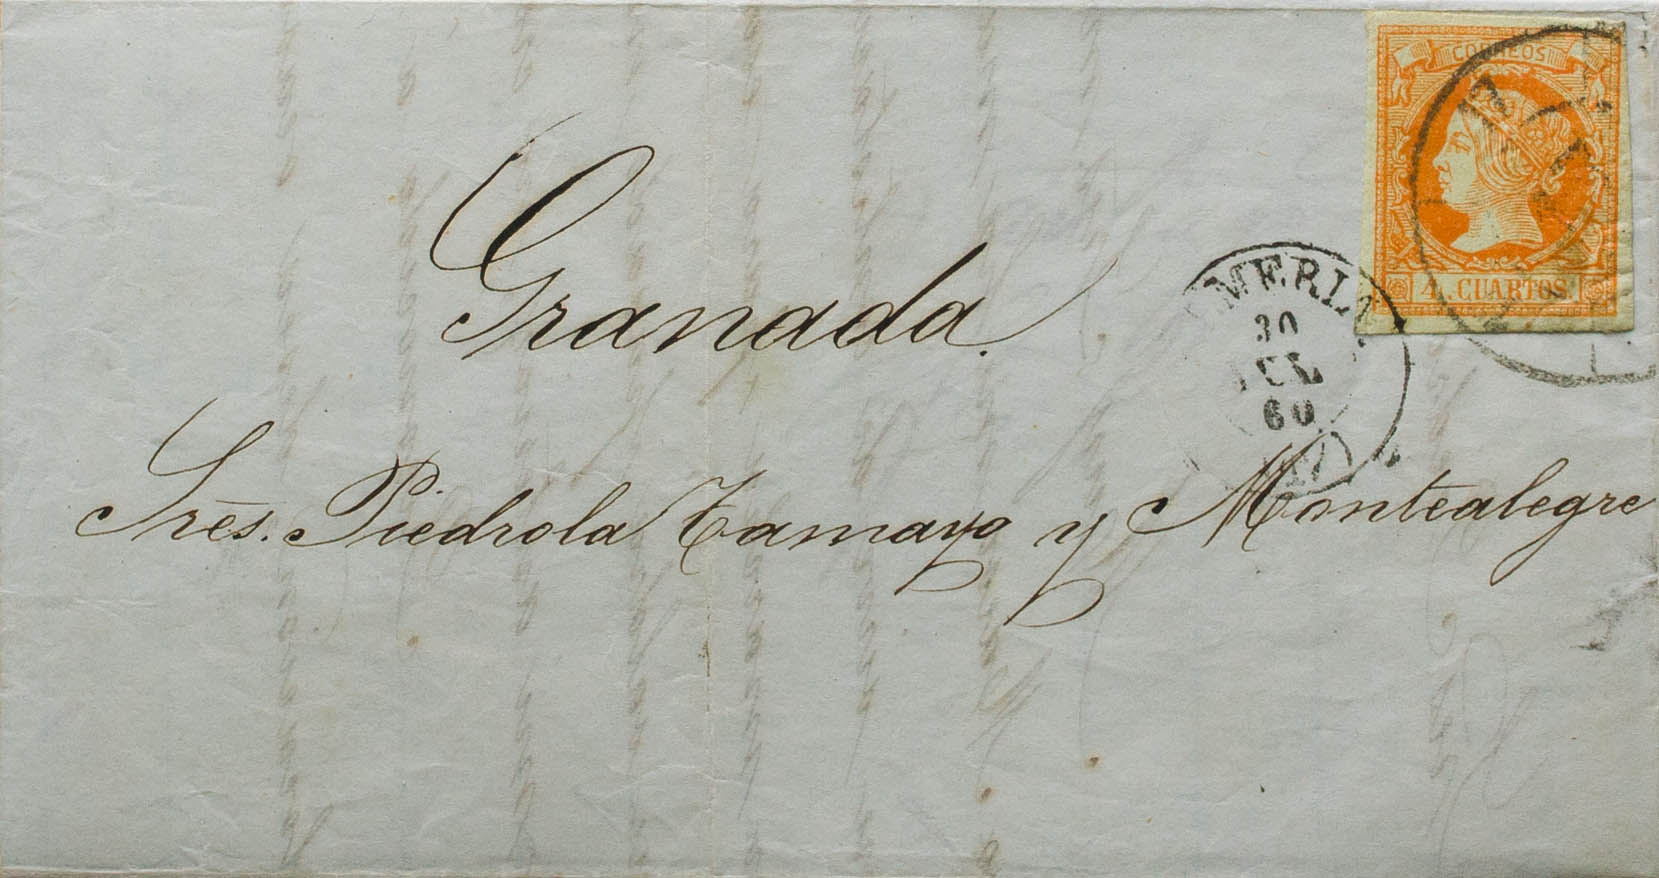 CORREOS
4 CUARTOS
Granada.
ALMERIA
30
JUL
60
Sres. Piedrola Tamayo y Montealegre